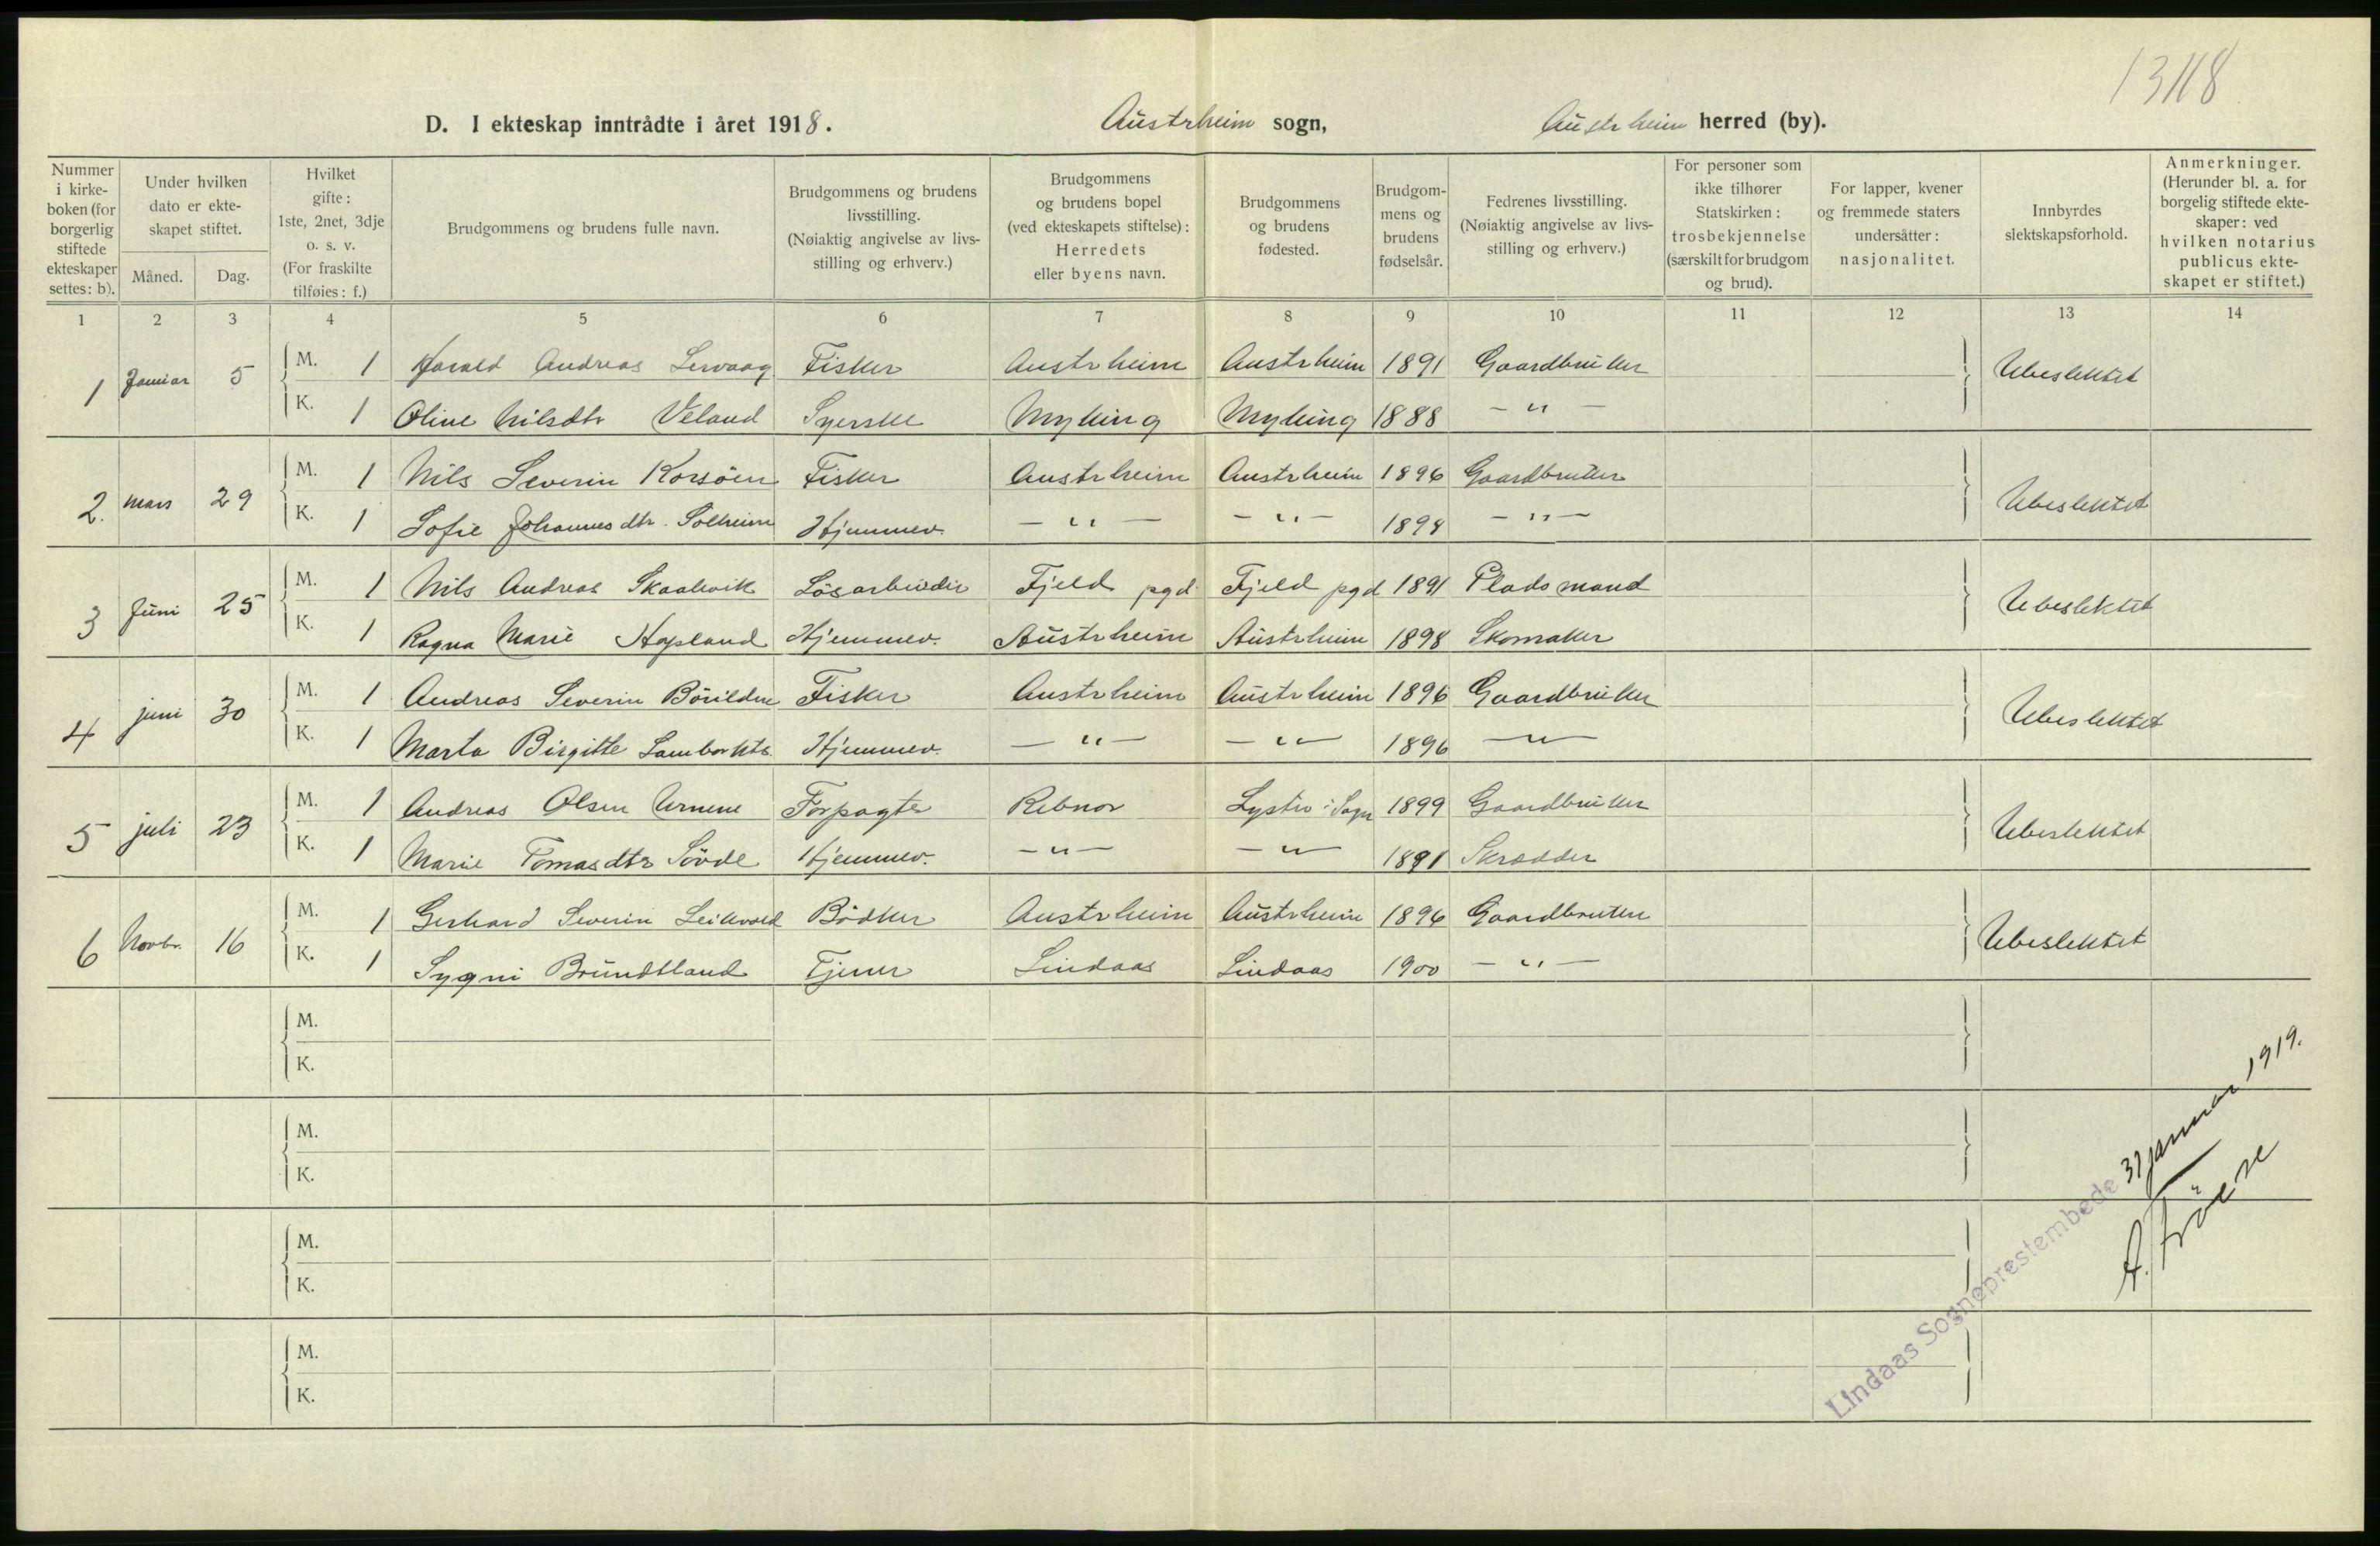 13118
D. I ekteskap inntrådte i året 1918. Austrheim sogn, Austrheim herred (by).
Nummer i kirke-boken (for borgerlig stiftede ekteskaper settes: b).
Under hvilken dato er ekte-skapet stiftet.
Måned. Dag.
Hvilket gifte: 1ste, 2net, 3dje o. s. v. (For fraskilte tilføies: f.)
Brudgommens og brudens fulle navn.
Brudgommens og brudens livsstilling. (Nøiaktig angivelse av livs-stilling og erhverv.)
Brudgommens og brudens bopel (ved ekteskapets stiftelse): Herredets eller byens navn.
Brudgommens og brudens fødested.
Brudgom-mens og brudens fødselsår.
Fedrenes livsstilling. (Nøiaktig angivelse av livs-stilling og erhverv.)
For personer som ikke tilhører Statskirken: trosbekjennelse (særskilt for brudgom og brud).
For lapper, kvener og fremmede staters undersåtter: nasjonalitet.
Innbyrdes slektskapsforhold.
Anmerkninger. (Herunder bl. a. for borgelig stiftede ekte-skaper: ved hvilken notarius publicus ekte-skapet er stiftet.)
1 2 3 4 5 6 7 8 9 10 11 12 13 14
1 Januar 5 M. 1 Harald Andreas Lervaag Fisker Austrheim Austrheim 1891 Gaardbruker Ubeslektet
K. 1 Oline Nilsdtr Veland Syerske Myking Myking 1888 - " -
2. mars 29 M. 1 Nils Severin Korsöen Fisker Austrheim Austrheim 1896 Gaardbruker Ubeslektet
K. 1 Sofie Johannesdtr. Solheim Hjemmev. - " - - " - 1898 - " -
3 Juni 25 M. 1 Nils Andreas Skaalevik Lösarbeider Fjeld pgd. Fjeld pgd 1891 Pladsmand Ubeslektet
K. 1 Ragna Marie Hopland Hjemmev. Austrheim Austrheim 1898 Skomaker
4 juni 30 M. 1 Andreas Severin Börilden Fisker Austrheim Austrheim 1896 Gaardbruker Ubeslektet
K. 1 Marta Birgitte Hjemmev. - " - - " - 1896 - " -
5 juli 23 M. 1 Andreas Olsen Urnene Forpagter Rebnor i Sogn 1899 Gaardbruker Ubeslektet
K. 1 Marie Tomasdtr Sövde Hjemmev. - " - - " - 1891 Skrædder
6 Novbr. 16 M. 1 Gerhard Severin Leikvold Bödker Austrheim Austrheim 1896 Gaardbruker Ubeslektet
K. 1 Sygni Brundtland Tjener Lindaas Lindaas 1900 - " -
M.
K.
M.
K.
M.
K.
M.
K.
Lindaas Sogneprestembede 31 januar 1919.